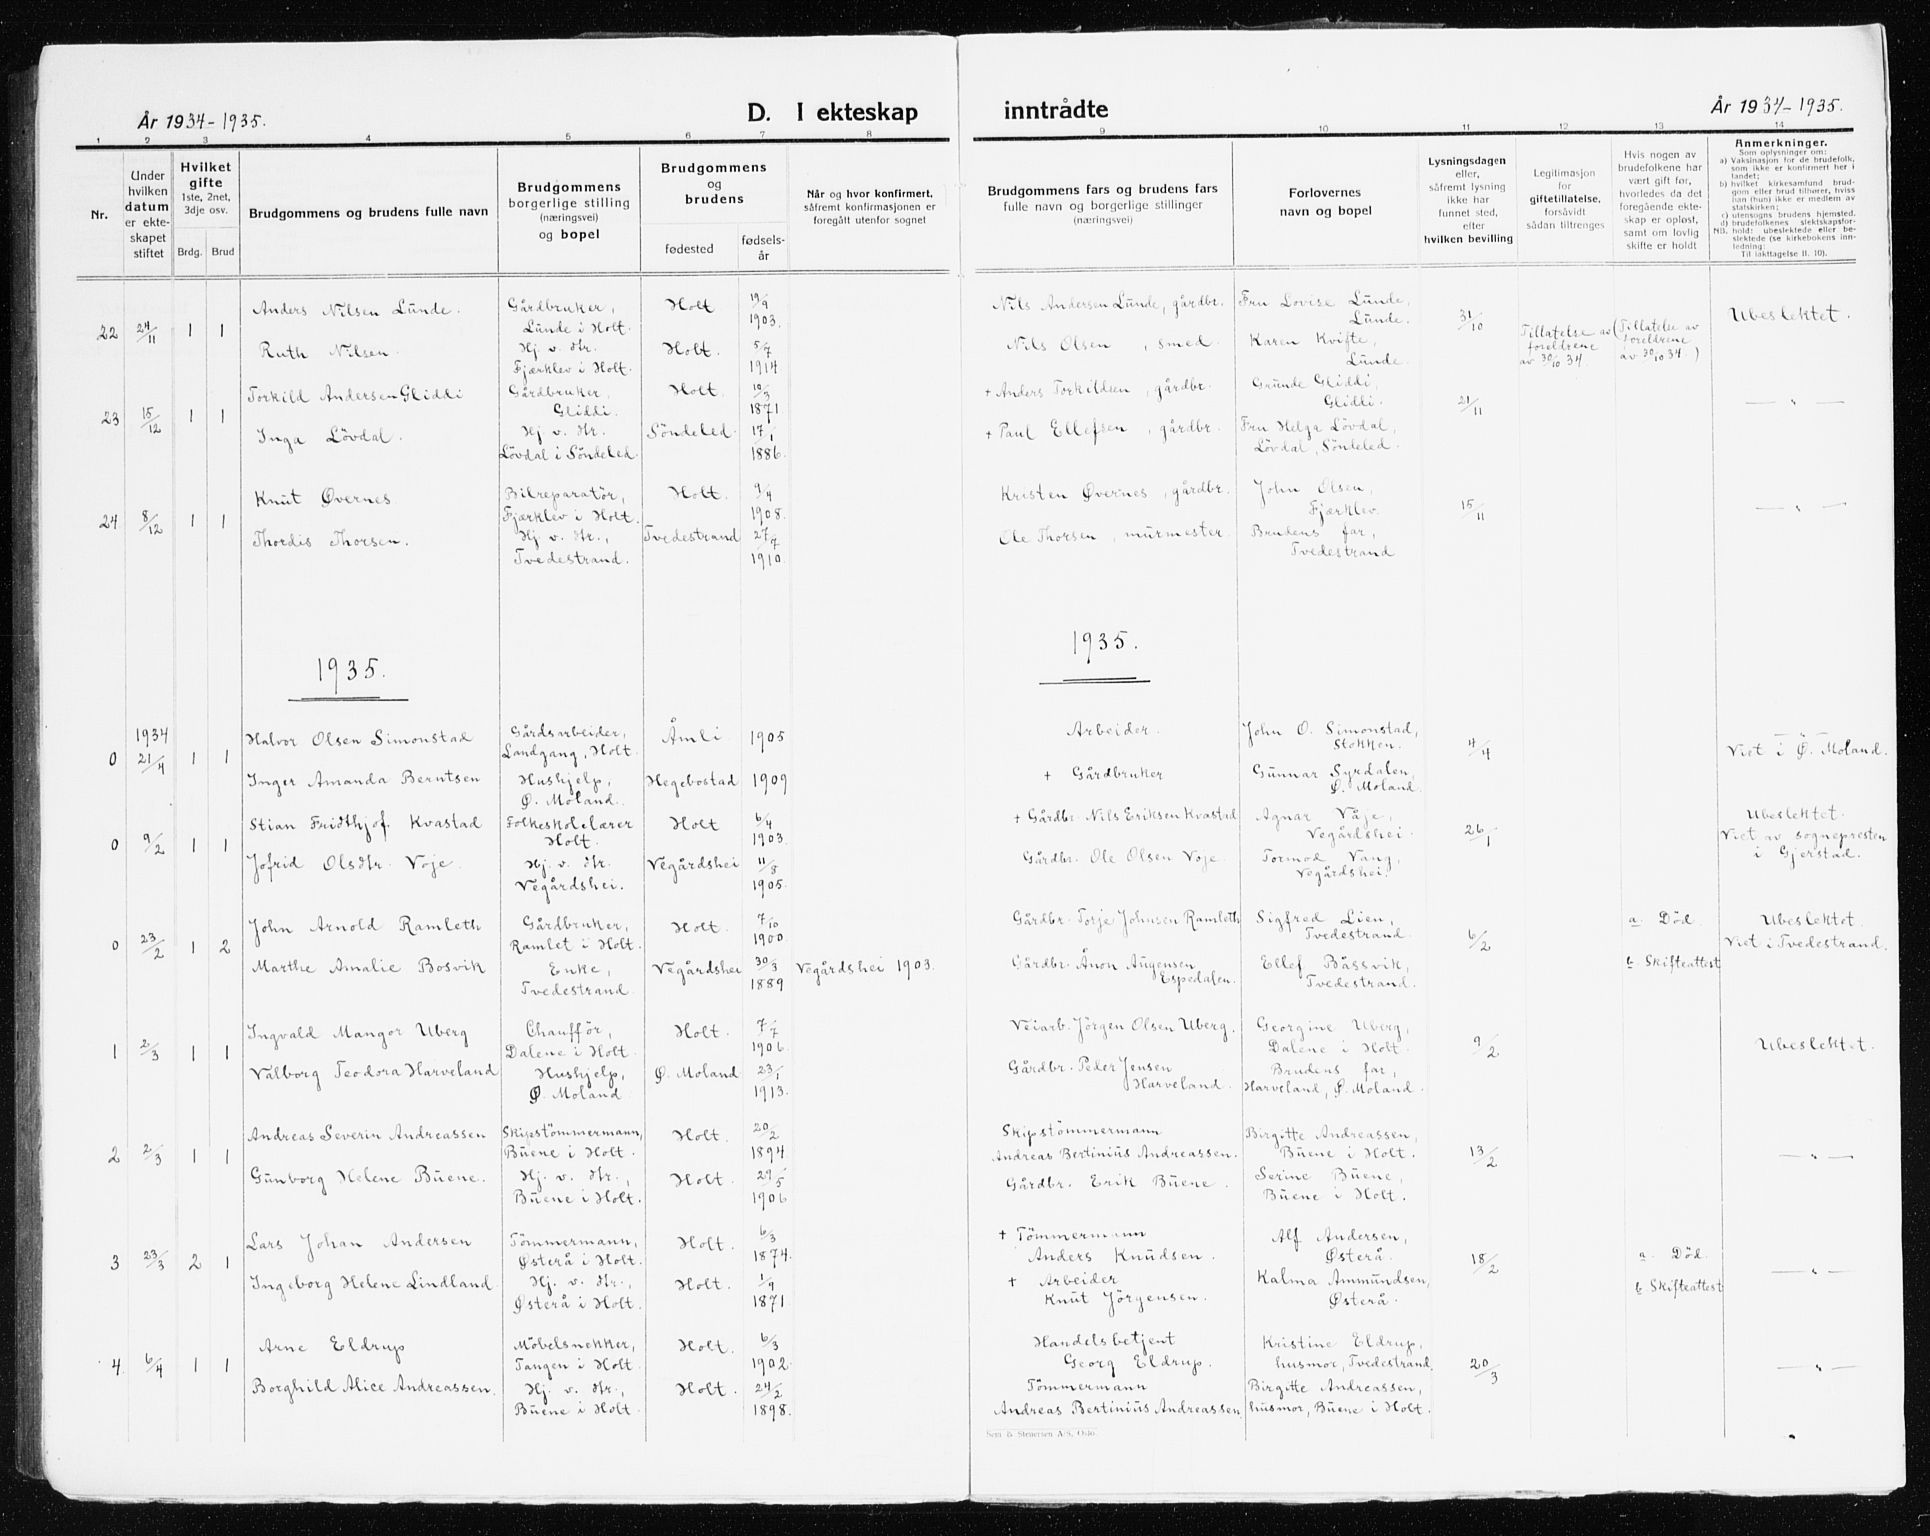 År 1934-1935.
D. I ekteskap inntrådte
År 1934-1935.
1 2 3 4 5 6 7 8 9 10 11 12 13 14
Nr.
Under
hvilken
datum
er ekte-
skapet
stiftet
Hvilket
gifte
1ste, 2net,
3dje osv.
Brdg. Brud
Brudgommens og brudens fulle navn
Brudgommens
borgerlige stilling
(næringsvei)
og bopel
Brudgommens
og
brudens
fødested
fødsels-
år
Når og hvor konfirmert,
såfremt konfirmasjonen er
foregått utenfor sognet
Brudgommens fars og brudens fars
fulle navn og borgerlige stillinger
(næringsvei)
Forlovernes
navn og bopel
Lysningsdagen
eller,
såfremt lysning
ikke har
funnet sted,
efter
hvilken bevilling
Legitimasjon
for
giftetillatelse,
forsåvidt
sådan tiltrenges
Hvis nogen av
brudefolkene har
vært gift før,
hvorledes da det
foregående ekte-
skap er opløst,
samt om lovlig
skifte er holdt
Anmerkninger.
Som oplysninger om:
a) Vaksinasjon for de brudefolk,
som ikke er konfirmert her i
landet;
b) hvilket kirkesamfund brud-
gom eller brud tilhører, hviss
han (hun) ikke er medlem av
statskirken;
c) utensogns brudens hjemsted.
d) brudefolkenes slektskapsfor-
hold: ubeslektede eller be-
slektede (se kirkebokens inn-
ledning:
Til iakttagelse II. 10).
NB.
22 24/11 1 1
Anders Nilsen Lunde.
Gårdbruker,
Lunde i Holt.
Holt
19/9
1903.
Nils Andersen Lunde, gårdbr.
Fru Lovise Lunde,
Lunde.
31/10
Tillatelse av
foreldrene
av 30/10 34.
(Tillatelse av
foreldrene
av 30/10 34.)
Ubeslektet.
Ruth Nilsen.
Hj v. Str.
Fjærklev i Holt.
Holt.
5/7
1914
Nils Olsen, smed.
Karen Kvifte,
Lunde.
23 15/12 1 1
Torkild Andersen Gliddi
Gårdbruker,
Gliddi.
Holt.
10/3
1871
+ Anders Torkildsen, gårdbr.
Grunde Gliddi,
Gliddi.
21/11
— " —
Inga Lövdal.
Hj v. Str.
Lövdal i Söndeled.
Söndeled.
17/1
1886.
+ Paul Ellefsen, gårdbr.
Fru Helga Lövdal,
Lövdal, Söndeled.
24 8/12 1 1
Knut Øvernes.
Bilreparatör,
Fjærklev i Holt.
Holt.
9/4
1908.
Kristen Øvernes, gårdbr.
John Olsen,
Fjærklev.
15/11
— " —
Thordis Thorsen.
Hj. v. Str.,
Tvedestrand.
Tvedestrand
27/7
1910.
Ole Thorsen, murmester.
Brudens far,
Tvedestrand
1935.
1935.
0 1934
21/4 1 1
Halvor Olsen Simonstad
Gårdsarbeider,
Landgang, Holt.
Åmli
1905
Arbeider.
John O. Simonstad,
Stokken.
4/4
— " —
Viet i Ø. Moland.
Inger Amanda Berntsen
Hushjelp,
Ø. Moland.
Hegebostad
1909
+ Gårdbruker
Gunnar Syrdalen,
Ø. Moland.
0 9/2 1 1
Stian Fridthjof Kvastad
Folkeskolelærer
Holt.
Holt
6/4
1903.
+ Gårdbr. Nils Eriksen Kvastad
Agnar Våje,
Vegårdshei.
26/1
Ubeslektet.
Viet av sognepresten
i Gjerstad.
Jofrid Olsdtr. Voje.
Hj. v. Str.
Vegårdshei.
Vegårdshei
11/8
1905.
Gårdbr. Ole Olsen Voje.
Tormod Vang,
Vegårdshei.
0 23/2 1 2
John Arnold Ramleth
Gårdbruker,
Ramlet i Holt.
Holt.
7/10
1900.
Gårdbr. Torje Johnsen Ramleth
Sigfred Lien,
Tvedestrand.
6/2
a. Död.
Ubeslektet.
Viet i Tvedestrand.
Marthe Amalie Bosvik
Enke,
Tvedestrand.
Vegårdshei
30/3
1889
Vegårdshei 1903.
Gårdbr. Ånon Augensen
Espedalen.
Ellef Båssvik,
Tvedestrand.
b Skifteattest
1 2/3 1 1
Ingvald Mangor Uberg
Chaufför,
Dalene i Holt.
Holt.
7/7
1906.
Veiarb. Jörgen Olsen Uberg.
Georgine Uberg,
Dalene i Holt.
9/2
Ubeslektet.
Valborg Teodora Harveland
Hushjelp,
Ø. Moland.
Ø. Moland
23/1
1913.
Gårdbr. Peder Jensen
Harveland.
Brudens far,
Harveland, Ø. Moland.
2 2/3 1 1
Andreas Severin Andreassen
Skipstömmermann,
Buene i Holt.
Holt.
20/2
1894.
Skipstömmermann
Andreas Bertinius Andreassen.
Birgitte Andreassen,
Buene i Holt.
13/2
— " —
Gunborg Helene Buene.
Hj. v. Str.,
Buene i Holt.
Holt.
29/5
1906
Gårdbr. Erik Buene.
Serine Buene,
Buene i Holt.
3 23/3 2 1
Lars Johan Andersen
Tömmermann,
Østerå i Holt.
Holt.
6/3
1874.
+ Tömmermann
Anders Knudsen.
Alf Andersen,
Østerå.
18/2
a. Död.
— " —
Ingeborg Helene Lindland.
Hj. v. Str.,
Østerå i Holt.
Holt.
1/9
1871.
+ Arbeider
Knut Jörgensen.
Kalma Ammundsen,
Østerå.
b Skifteattest
4 6/4 1 1
Arne Eldrup
Möbelsnekker,
Tangen i Holt.
Holt.
6/3
1902.
Handelsbetjent
Georg Eldrup.
Kristine Eldrup,
husmor, Tvedestrand.
20/3
— " —
Borghild Alice Andreassen.
Hj. v. Str.,
Buene i Holt.
Holt.
24/2
1898.
Tömmermann
Andreas Bertinius Andreassen.
Birgitte Andreassen,
husmor, Buene i Holt.
Sem & Stenersen A/S, Oslo.